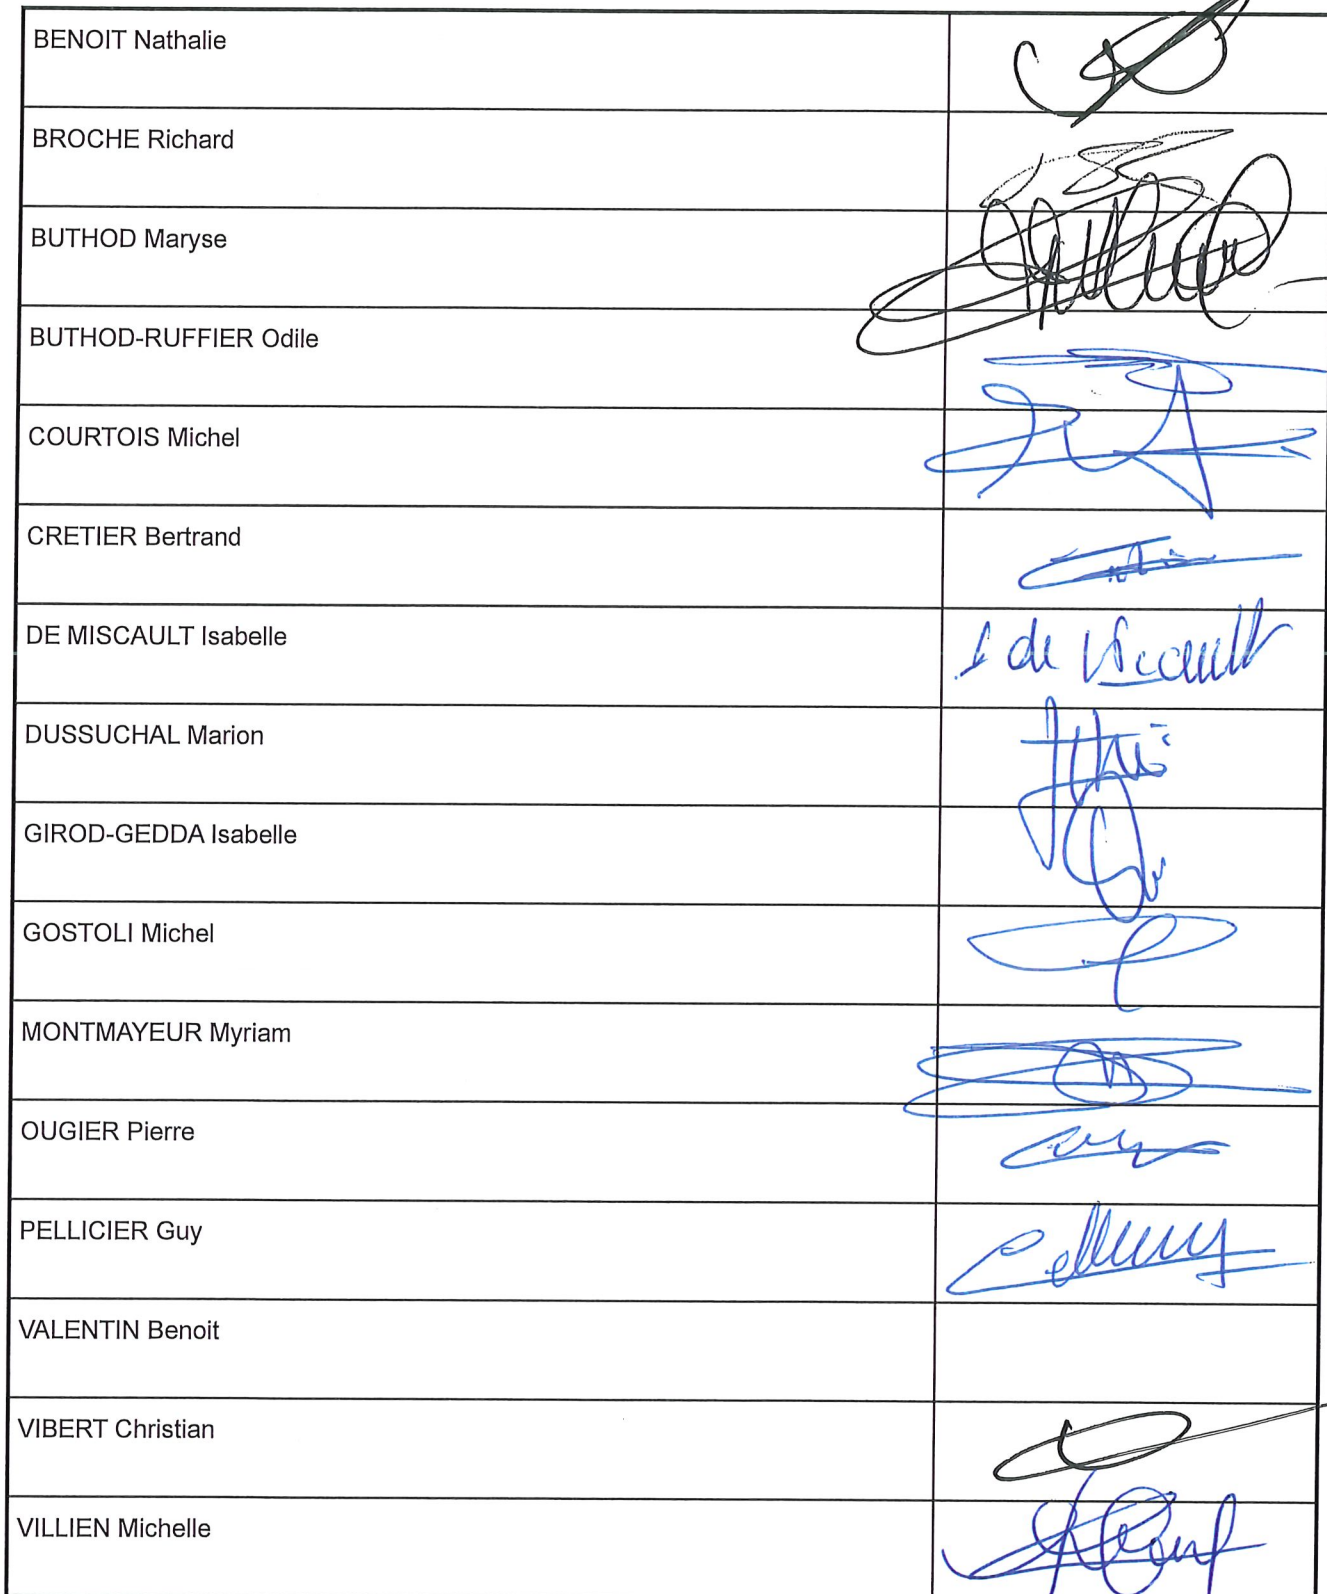 BENOIT Nathalie
BROCHE Richard
BUTHOD Maryse
BUTHOD-RUFFIER Odile
COURTOIS Michel
CRETIER Bertrand
DE MISCAULT Isabelle
I de Miscault
DUSSUCHAL Marion
GIROD-GEDDA Isabelle
GOSTOLI Michel
MONTMAYEUR Myriam
OUGIER Pierre
PELLICIER Guy
VALENTIN Benoit
VIBERT Christian
VILLIEN Michelle